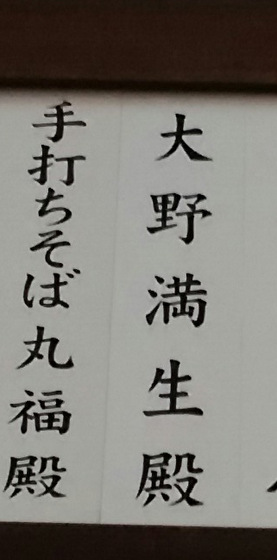 大野満生殿
手打ちそば丸福殿